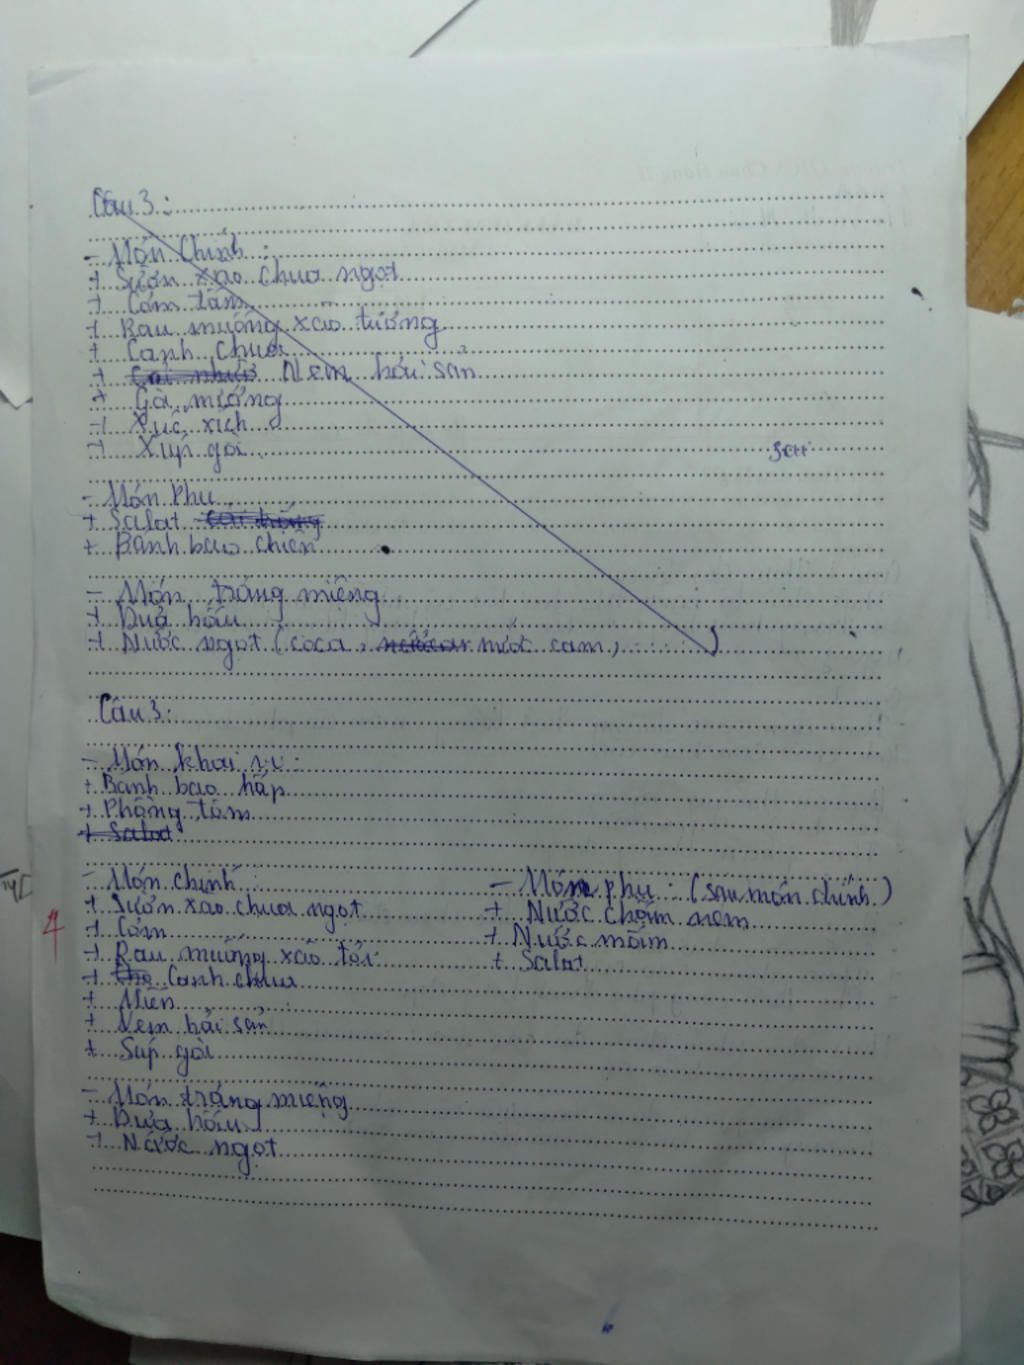 Câu 3:
- Món chính:
+ Sườn xào chua ngọt
+ Cơm tấm
+ Rau muống xào tương
+ Canh chua
+ Nem hải sản
+ Gà nướng
+ Xúc xích
+ Xúp gà
- Món phụ
+ Salat
+ Bánh bao chiên
- Món tráng miệng
+ Dưa hấu
+ Nước ngọt (coca, nước cam, ......)
Câu 3:
- Món khai vị:
+ Bánh bao hấp
+ Phồng tôm
+ Salat
- Món chính:
+ Sườn xào chua ngọt
+ Cơm
+ Rau muống xào tỏi
+ Canh chua
+ Miến
+ Nem hải sản
+ Súp gà
- Món phụ: (sau món chính)
+ Nước chấm nem
+ Nước mắm
+ Salat
- Món tráng miệng
+ Dưa hấu
+ Nước ngọt
4